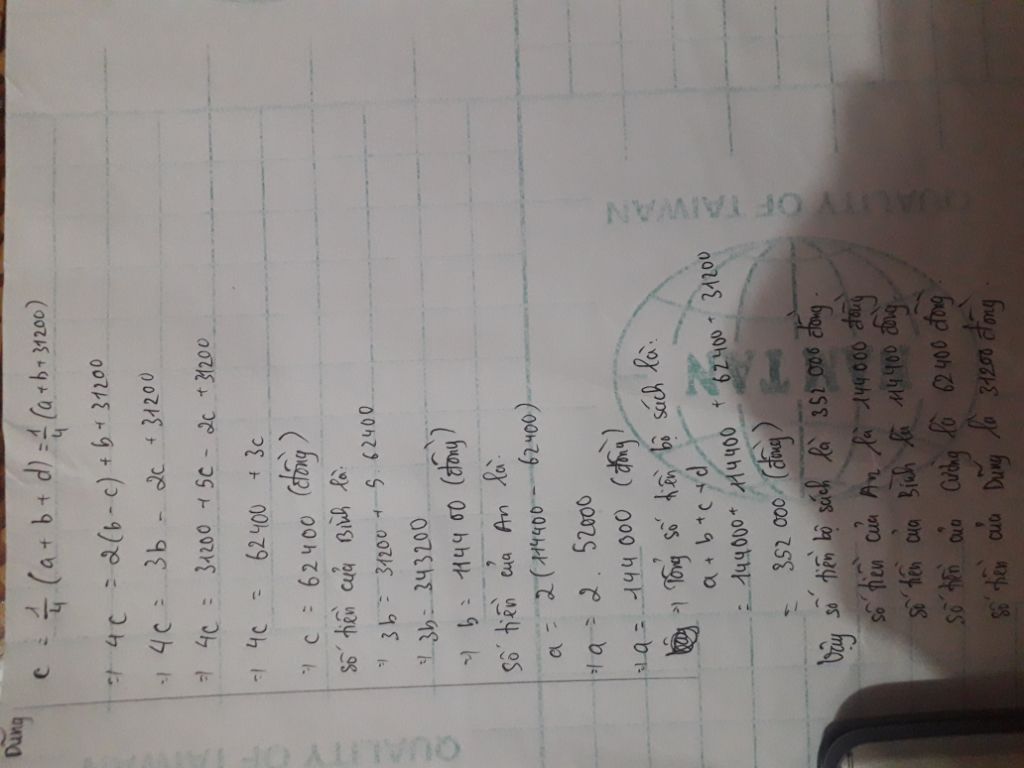 Dũng
c = 1/4 (a + b + d) = 1/4 (a+b+31200)
=> 4c = 2(b - c) + b + 31200
=> 4c = 3b - 2c + 31200
=> 4c = 31200 + 5c - 2c + 31200
=> 4c = 62400 + 3c
=> c = 62400 (đồng)
Số tiền của Bình là:
=> 3b = 31200 + 5. 62400
=> 3b = 343200
=> b = 114400 (đồng)
Số tiền của An là:
a = 2 (114400 - 62400)
=> a = 2 . 52000
=> a = 144000 (đồng)
=> Tổng số tiền bộ sách là:
a + b + c + d
= 144000 + 114400 + 62400 + 31200
= 352000 (đồng)
Vậy số tiền bộ sách là 352000 đồng.
Số tiền của An là 144000 đồng
Số tiền của Bình là 114400 đồng
Số tiền của Cường là 62400 đồng
Số tiền của Dũng là 31200 đồng
QUALITY OF TAIWAN
QUALITY OF TAIWAN